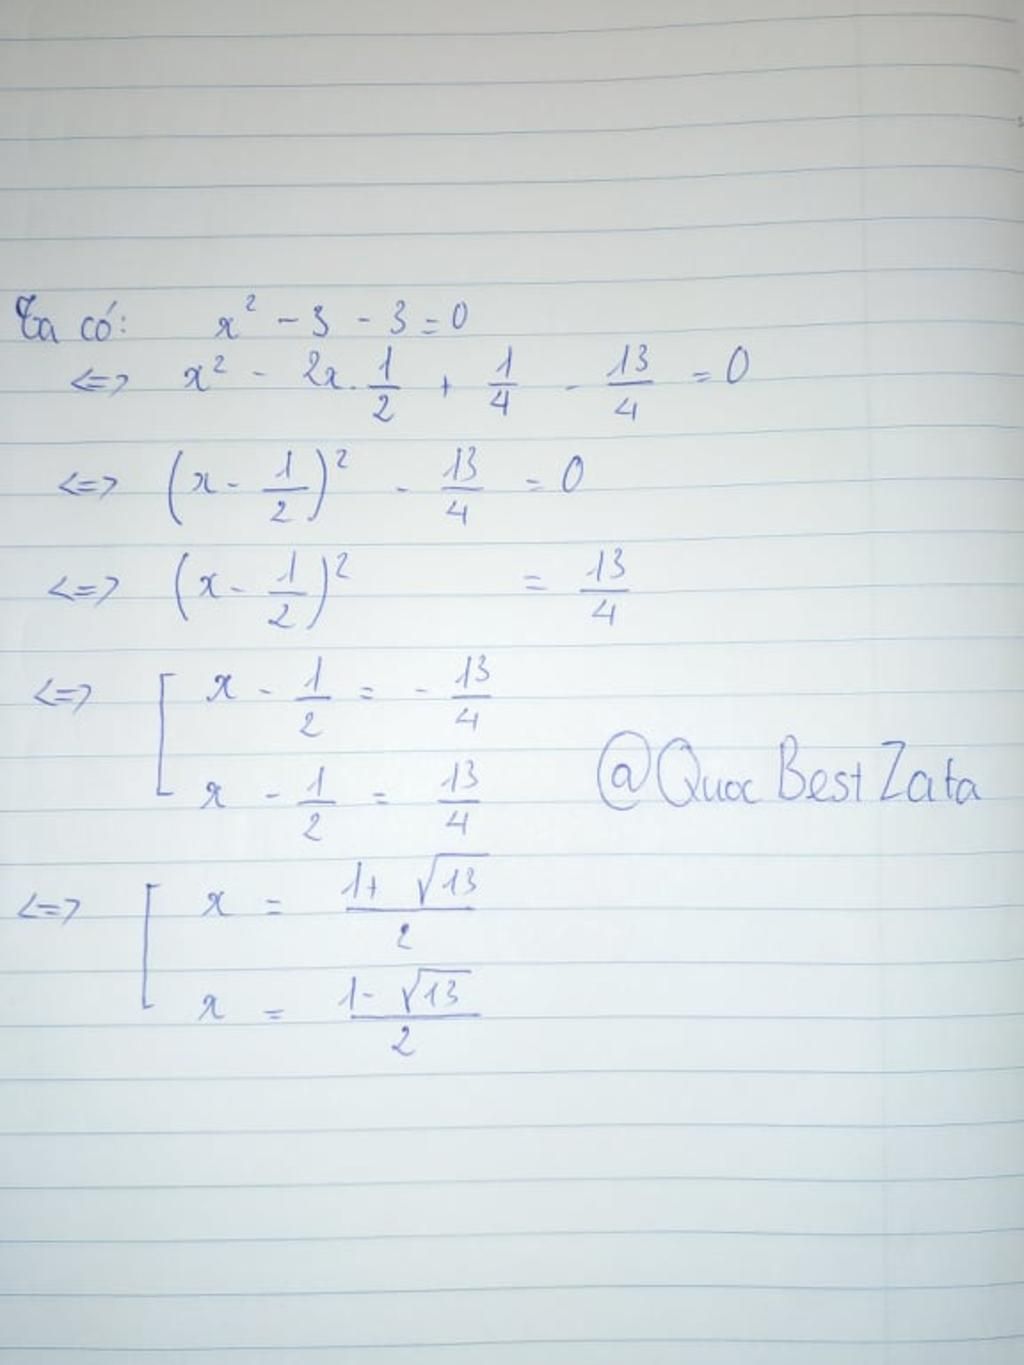 Ta có: x² - 3 - 3 = 0
<=> x² - 2x . 1/2 + 1/4 - 13/4 = 0
<=> (x - 1/2)² - 13/4 = 0
<=> (x - 1/2)² = 13/4
<=> [ x - 1/2 = - 13/4
x - 1/2 = 13/4
@Quoc Best Zata
<=> [ x = (1 + √13)/2
x = (1 - √13)/2